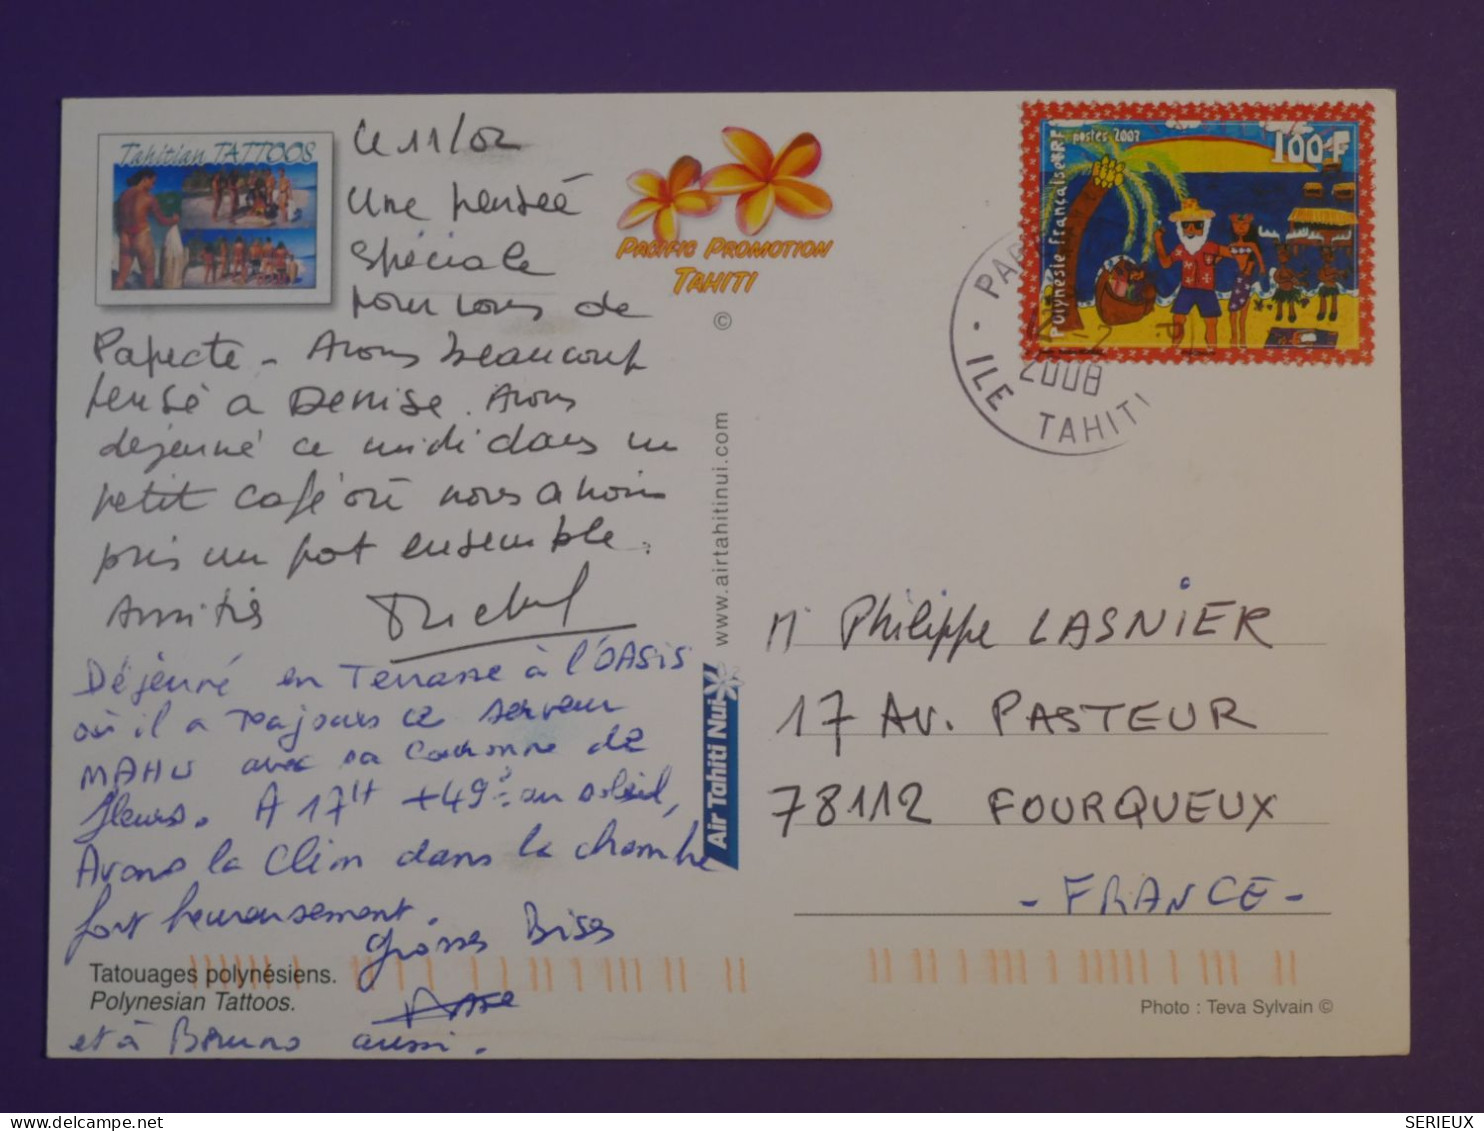 Tahitian TATTOOS
Ce 11/02
Une pensée
Spéciale
pour vous de
Papeete - Avons beaucoup
pensé a Denise. Avons
dejeuné ce midi dans un
petit café où nous avions
pris un pot ensemble.
Amitiés Michel
Déjeuné en Terrasse à l'OASIS
où il a toujours ce serveur
MAHU avec sa couronne de
fleurs. A 17H +49° au soleil,
Avons la Clim dans la chambre
fort heureusement.
Grosses Bises
et à Bruno aussi.
Tatouages polynésiens.
Polynesian Tattoos.
PACIFIC PROMOTION
TAHITI
©
www.airtahitinui.com
Air Tahiti Nui
Polynésie française RF
postes 2007
100F
2008
ILE TAHITI
M Philippe LASNIER
17 AV. PASTEUR
78112 FOURQUEUX
- FRANCE -
Photo : Teva Sylvain ©
SERIEUX